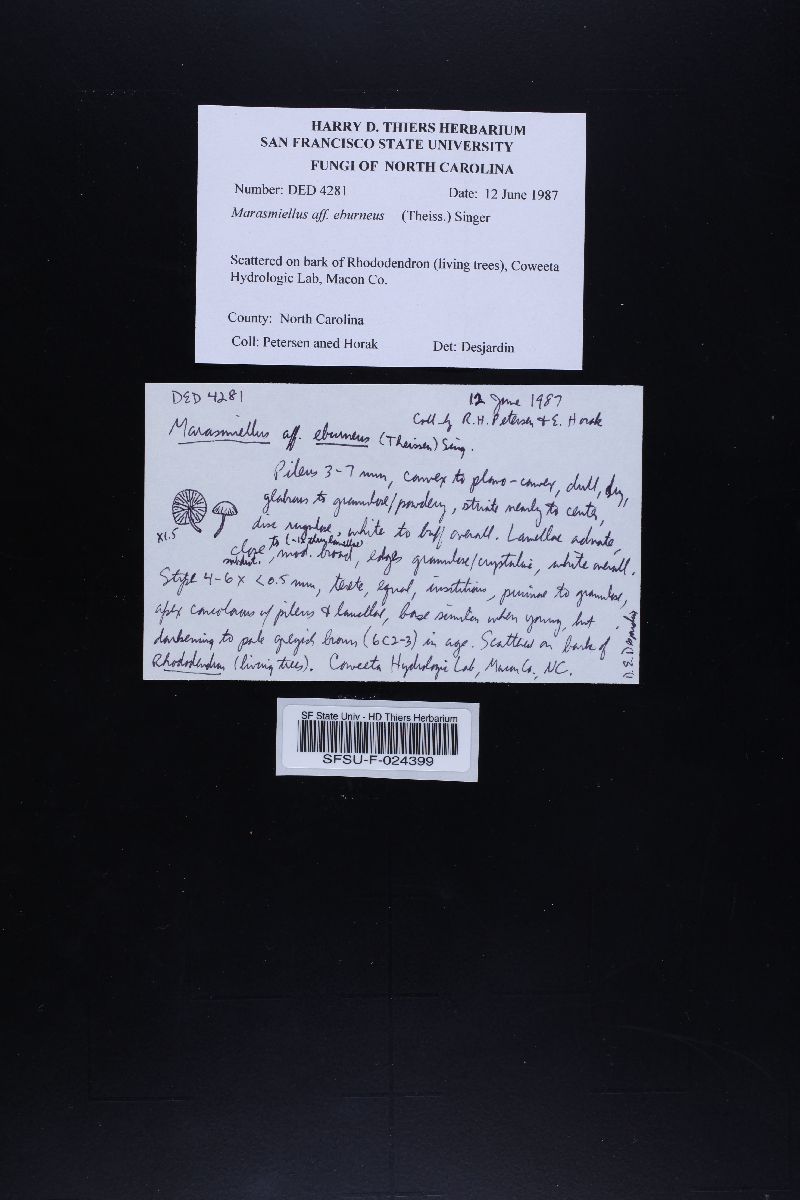 HARRY D. THIERS HERBARIUM
SAN FRANCISCO STATE UNIVERSITY
FUNGI OF NORTH CAROLINA
Number: DED 4281 Date: 12 June 1987
Marasmiellus aff. eburneus (Theiss.) Singer
Scattered on bark of Rhododendron (living trees), Coweeta
Hydrologic Lab, Macon Co.
County: North Carolina
Coll: Petersen aned Horak Det: Desjardin
DED 4281 12 June 1987
Coll. by R.H. Petersen & E. Horak
Marasmiellus aff. eburneus (Theissen) Sing.
Pileus 3-7 mm, convex to plano-convex, dull, dry,
glabrous to granulose/powdery, striate nearly to center,
disc rugulose, white to buff overall. Lamellae adnate,
close to subdist. , mod. broad, edges granulose/crystalline, white overall.
X1.5
Stipe 4-6 x <0.5 mm, terete, equal, institious, pruinose to granulose,
apex concolorous w/ pileus & lamellae, base similar when young, but
darkening to pale greyish brown (6C2-3) in age. Scattered on bark of
Rhododendron (living trees). Coweeta Hydrologic Lab, Macon Co., NC.
D.E. Desjardin
SF State Univ - HD Thiers Herbarium
SFSU-F-024399